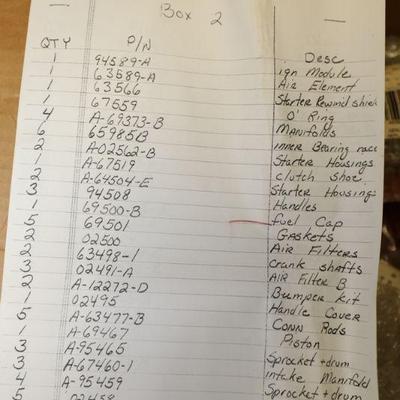 Box 2
QTY P/N Desc
1 94589-A ign Module
1 63589-A Air Element
1 63566 Starter Rewind
1 67559 O' Ring
4 A-69373-B Manifolds
6 65985B inner Bearing race
2 A-02562-B Starter Housings
1 A-67519 clutch shoe
2 A-64504-E Starter Housings
3 94508 Handles
1 69500-B fuel Cap
5 69501 Gaskets
2 02500 Air Filters
2 63498-1 crank shafts
3 02491-A Air Filter B
2 A-12272-D Bumper Kit
1 02495 Handle Cover
5 A-63477-B Conn Rods
1 A-69467 Piston
3 A-95465 Sprocket + drum
3 A-67460-1 intake Manifold
4 A-95459 Sprocket + drum
5